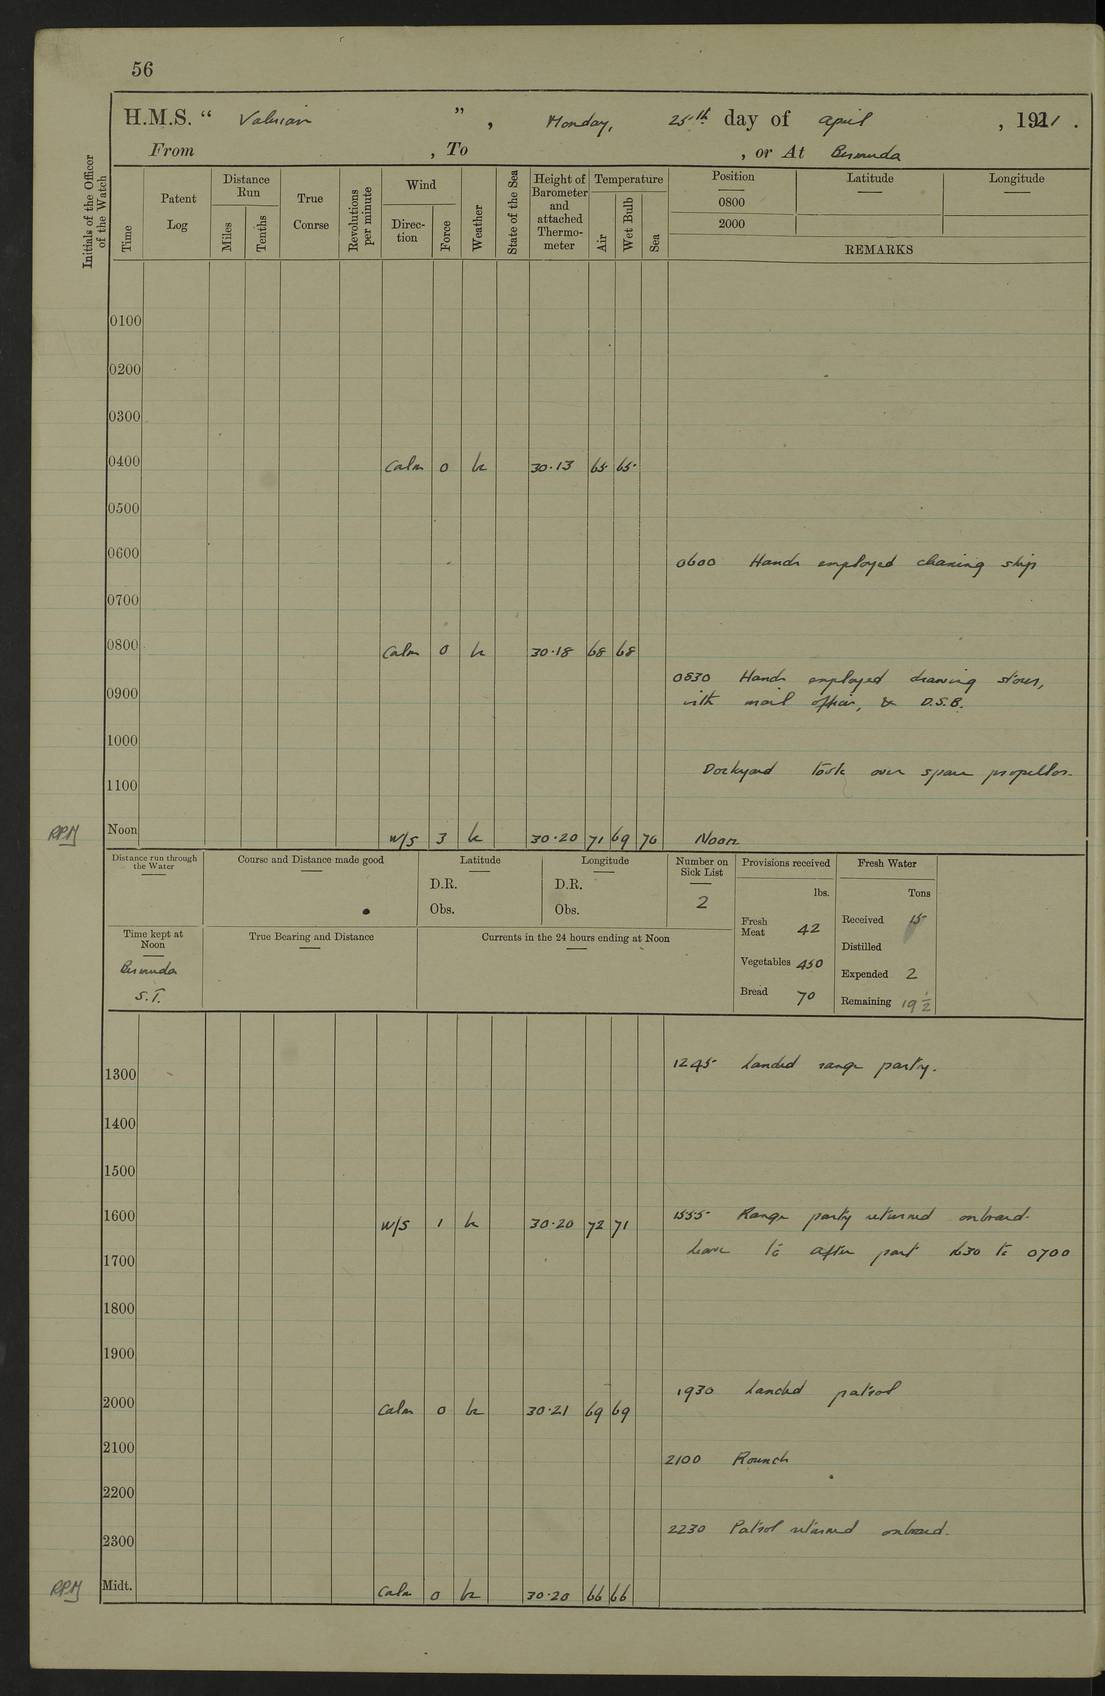 56
H.M.S. “ Valerian ” , Monday, 25th day of April , 1921 .
From , To , or At Bermuda
Initials of the Officer of the Watch
Time
Patent Log
Distance Run
Miles
Tenths
True Course
Revolutions per minute
Wind
Direc-tion
Force
Weather
State of the Sea
Height of Barometer and attached Thermo-meter
Temperature
Air
Wet Bulb
Sea
Position Latitude Longitude
0800
2000
REMARKS
0100
0200
0300
0400 Calm 0 bc 30.13 65 65
0500
0600 0600 Hands employed cleaning ship
0700
0800 Calm 0 bc 30.18 68 68
0830 Hands employed drawing stores,
0900 with mail officer, & D.S.B.
1000
Dockyard took over spare propellor.
1100
RPM Noon W/S 3 bc 30.20 71 69 70 Noon
Distance run through the Water
Course and Distance made good
Latitude
D.R.
Obs.
Longitude
D.R.
Obs.
Number on Sick List
2
Provisions received
lbs.
Fresh Meat 42
Vegetables 450
Bread 70
Fresh Water
Tons
Received 15
Distilled
Expended 2
Remaining 19 1/2
Time kept at Noon
Bermuda
S.T.
True Bearing and Distance
Currents in the 24 hours ending at Noon
1245 Landed range party.
1300
1400
1500
1600 W/S 1 bc 30.20 72 71 1555 Range party returned onboard.
Leave to after part 1630 to 0700
1700
1800
1900
1930 Landed patrol
2000 Calm 0 bc 30.21 69 69
2100 2100 Rounds
2200
2230 Patrol returned onboard.
2300
RPM Midt. Calm 0 bc 30.20 66 66